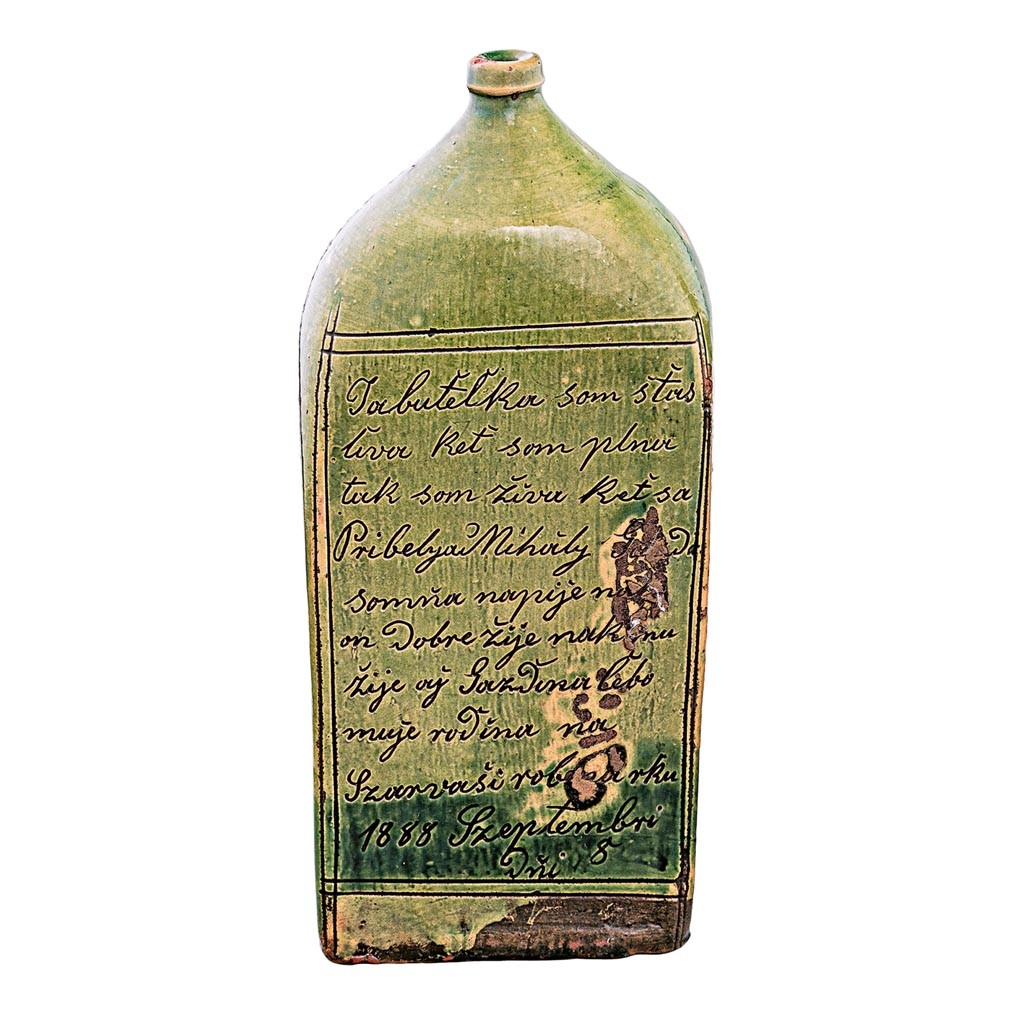 Ja butelka som štas
liva keť som plna
tak som živa keť sa
Pribelyad Mihály
somňa napije na
on dobre žije nak mu
žije aj Gazďina lebo
muje roďina na
Szarvaši roba rku
1888 Szeptembri
dňi 8